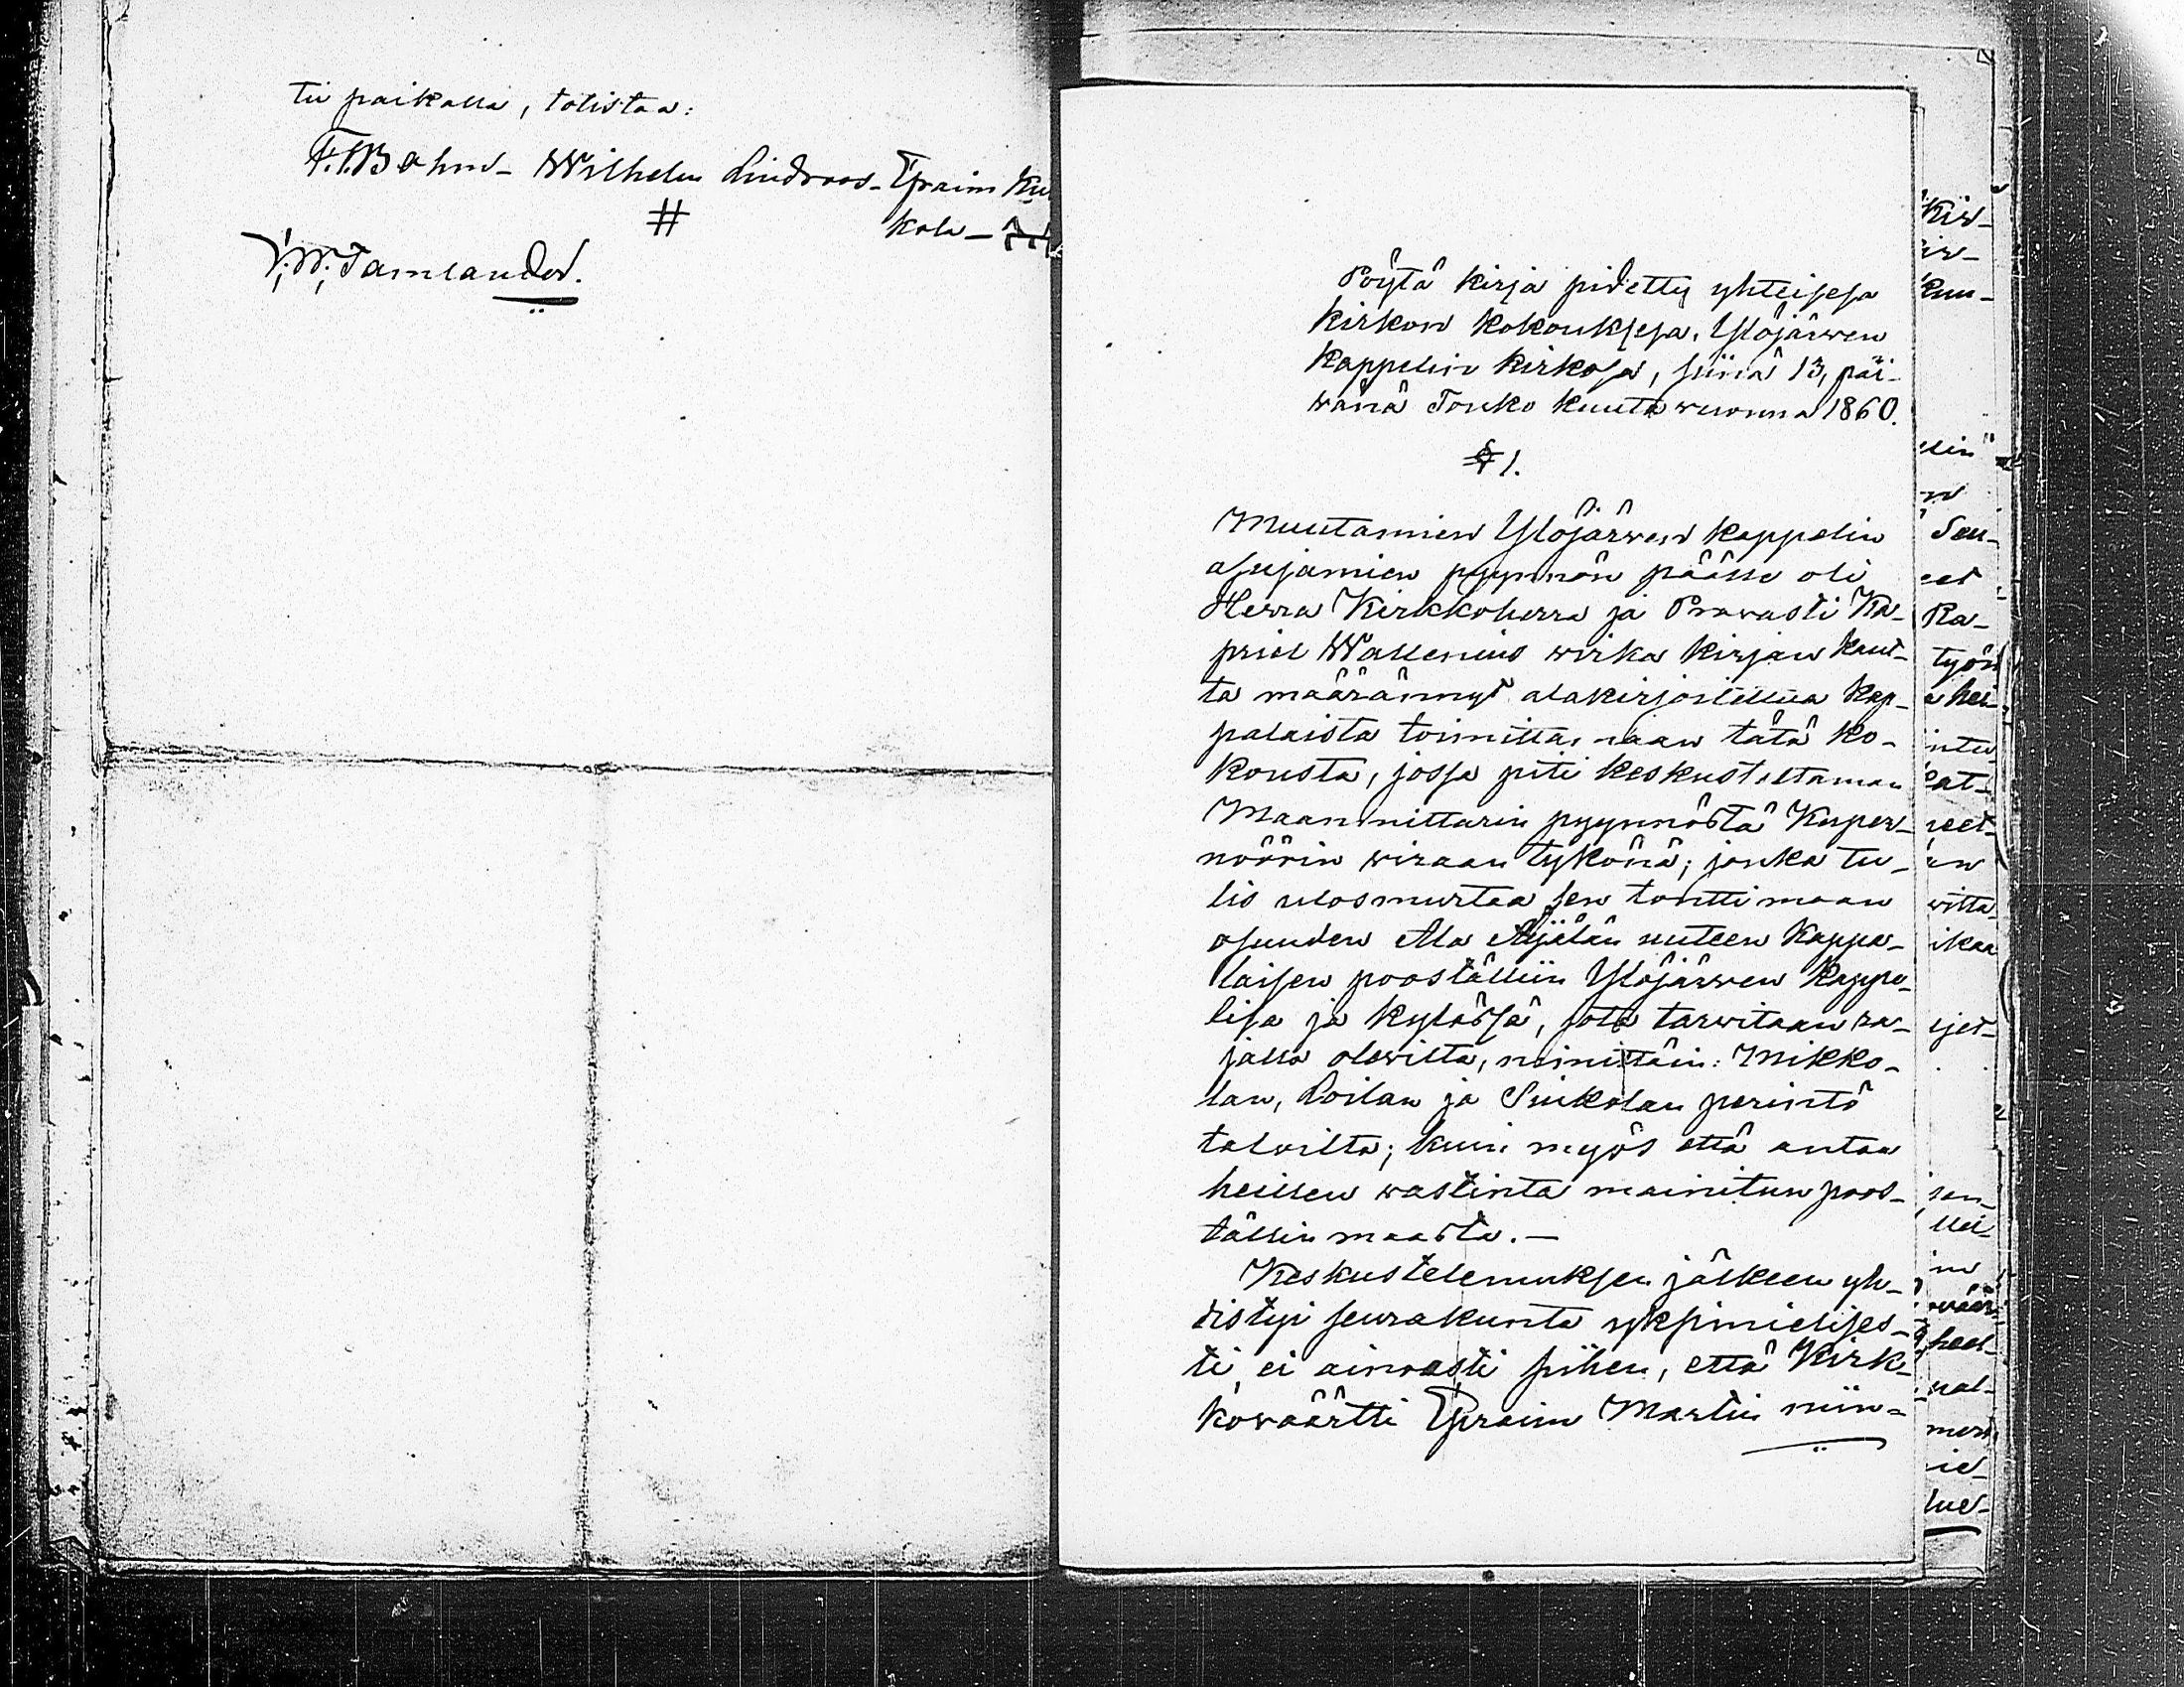 tii paikalla, totistaa:
F.F. Bohm – Wilhelm Lindroos – Epraim Ku
kola –
#
V. W. Tamlander.
Pöytä kirja pidetty yhteisesä
kirkon kokouksesa, Ylöjärwen
Kappelin kirkosa, siinä 13, päi-
wänä Touko kuuta wuonna 1860.
§ 1.
Muutamien Ylöjärwen kappelin
asujamien pyynnön päälle oli
Herra Kirkkoherra ja Prowasti Ka-
priel Wallenius wirka kirjan kaut-
ta määrännyt alakirjoitettua kap-
palaista toimittamaan tätä ko-
kousta, jossa piti keskusteltaman
Maanmittarin pyynnöstä Kuper-
nöörin wiraan tykönä; jonka tu-
lis ulosmurtaa sen tontti maan
osuuden Ala Äijälän uuteen Kappa-
laisen pooställiin Ylöjärwen Kappe-
lisa ja kylässä, jota tarwitaan ra-
jalla olewilta, nimittäin: Mikko-
lan, Loilan ja Siukolan perintö
taloilta; kuin myös että antaa
heillen wastinta mainitun poos-
tällin maasta. –
Keskustelemuksen jälkeen yh-
distyi seurakunta yksimielises-
ti, ei ainoasti siihen, että Kirk-
kowäärtti Epraim Martin niin-
Kir-
ir-
kuu-
llin
n
Seu-
eet
Ra-
työn
a hei-
ntu
kat-
neet-
än
witta
ikaa
sjet-
sen-
llei-
in
määr
heel-
nal-
men
lue-